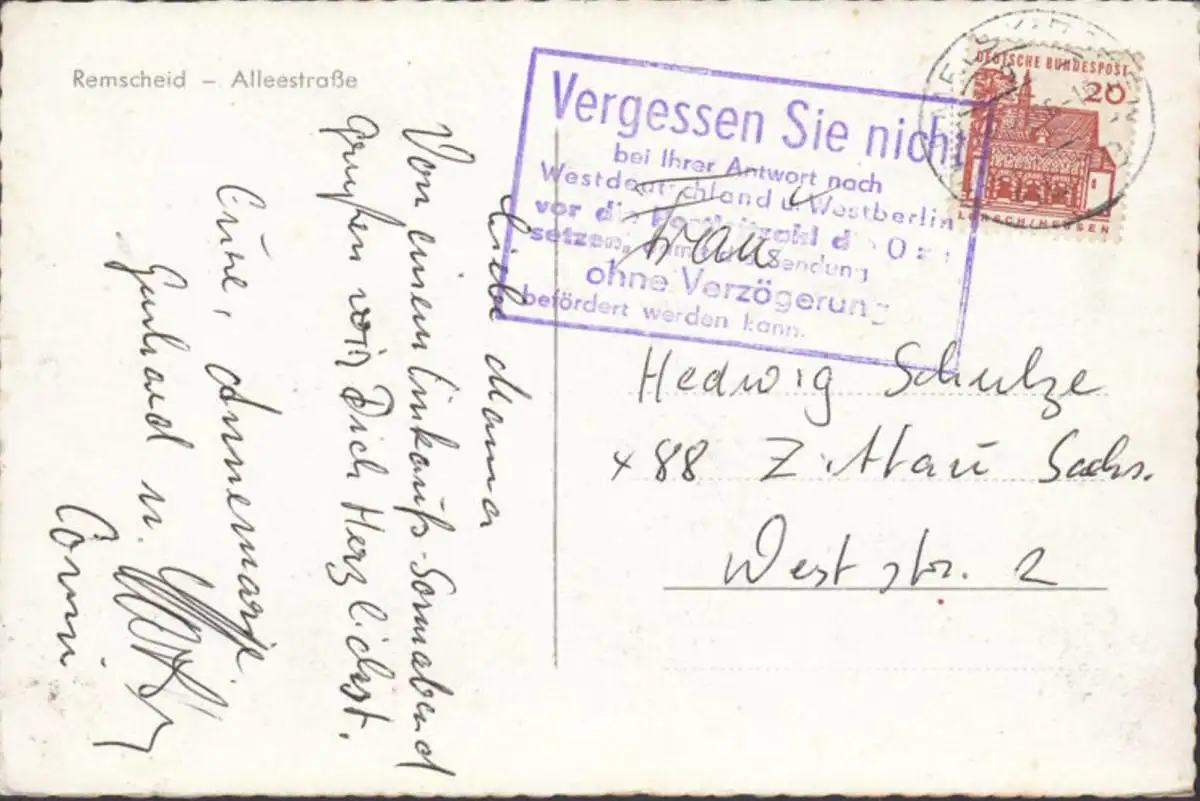 Remscheid – Alleestraße
DEUTSCHE BUNDESPOST
20
LORSCH/HESSEN
Vergessen Sie nicht
bei Ihrer Antwort nach
Westdeutschland u. Westberlin
vor die Postleitzahl d
setzen, damit die Sendung
ohne Verzögerung
befördert werden kann.
Liebe Mama
Von einem Einkaufs-Sonnabend
grüßen wir Dich Herzlichst.
Eure, Annemarie.
Gerhard u.
Conni
Frau
Hedwig Schulze
x 88 Zittau Sachs.
Weststr. 2